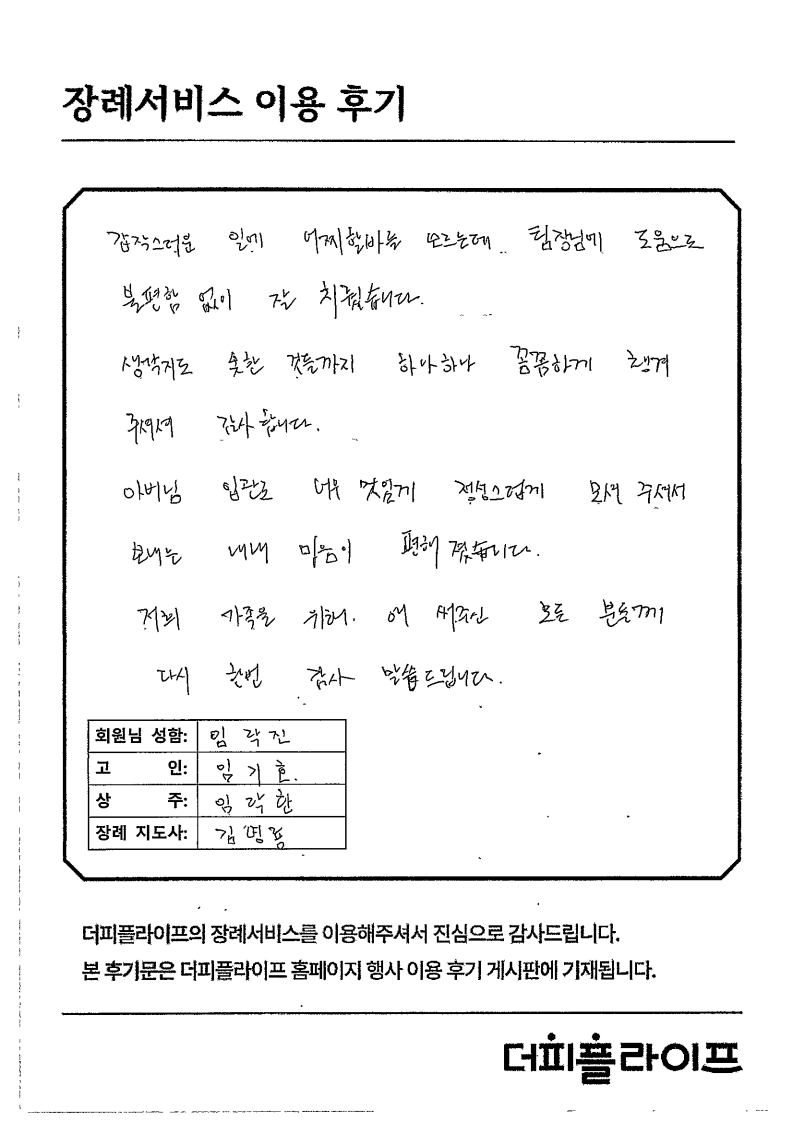 장례서비스 이용 후기
갑작스러운 일에 어찌할바를 모르는데.. 팀장님에 도움으로
불편함 없이 잘 치뤘습니다.
생각지도 못한 것들까지 하나하나 꼼꼼하게 챙겨
주셔서 감사합니다.
아버님 입관도 너무 멋있게 정성스럽게 모셔 주셔서
보내는 내내 마음이 편해 졌습니다.
저희 가족을 위해. 애 써주신 모든 분들께
다시 한번 감사 말씀드립니다.
회원님 성함: 임 락 진
고 인: 임 기 호.
상 주: 임 락 환
장례 지도사: 김 명
더피플라이프의 장례서비스를 이용해주셔서 진심으로 감사드립니다.
본 후기문은 더피플라이프 홈페이지 행사 이용 후기 게시판에 기재됩니다.
더피플라이프